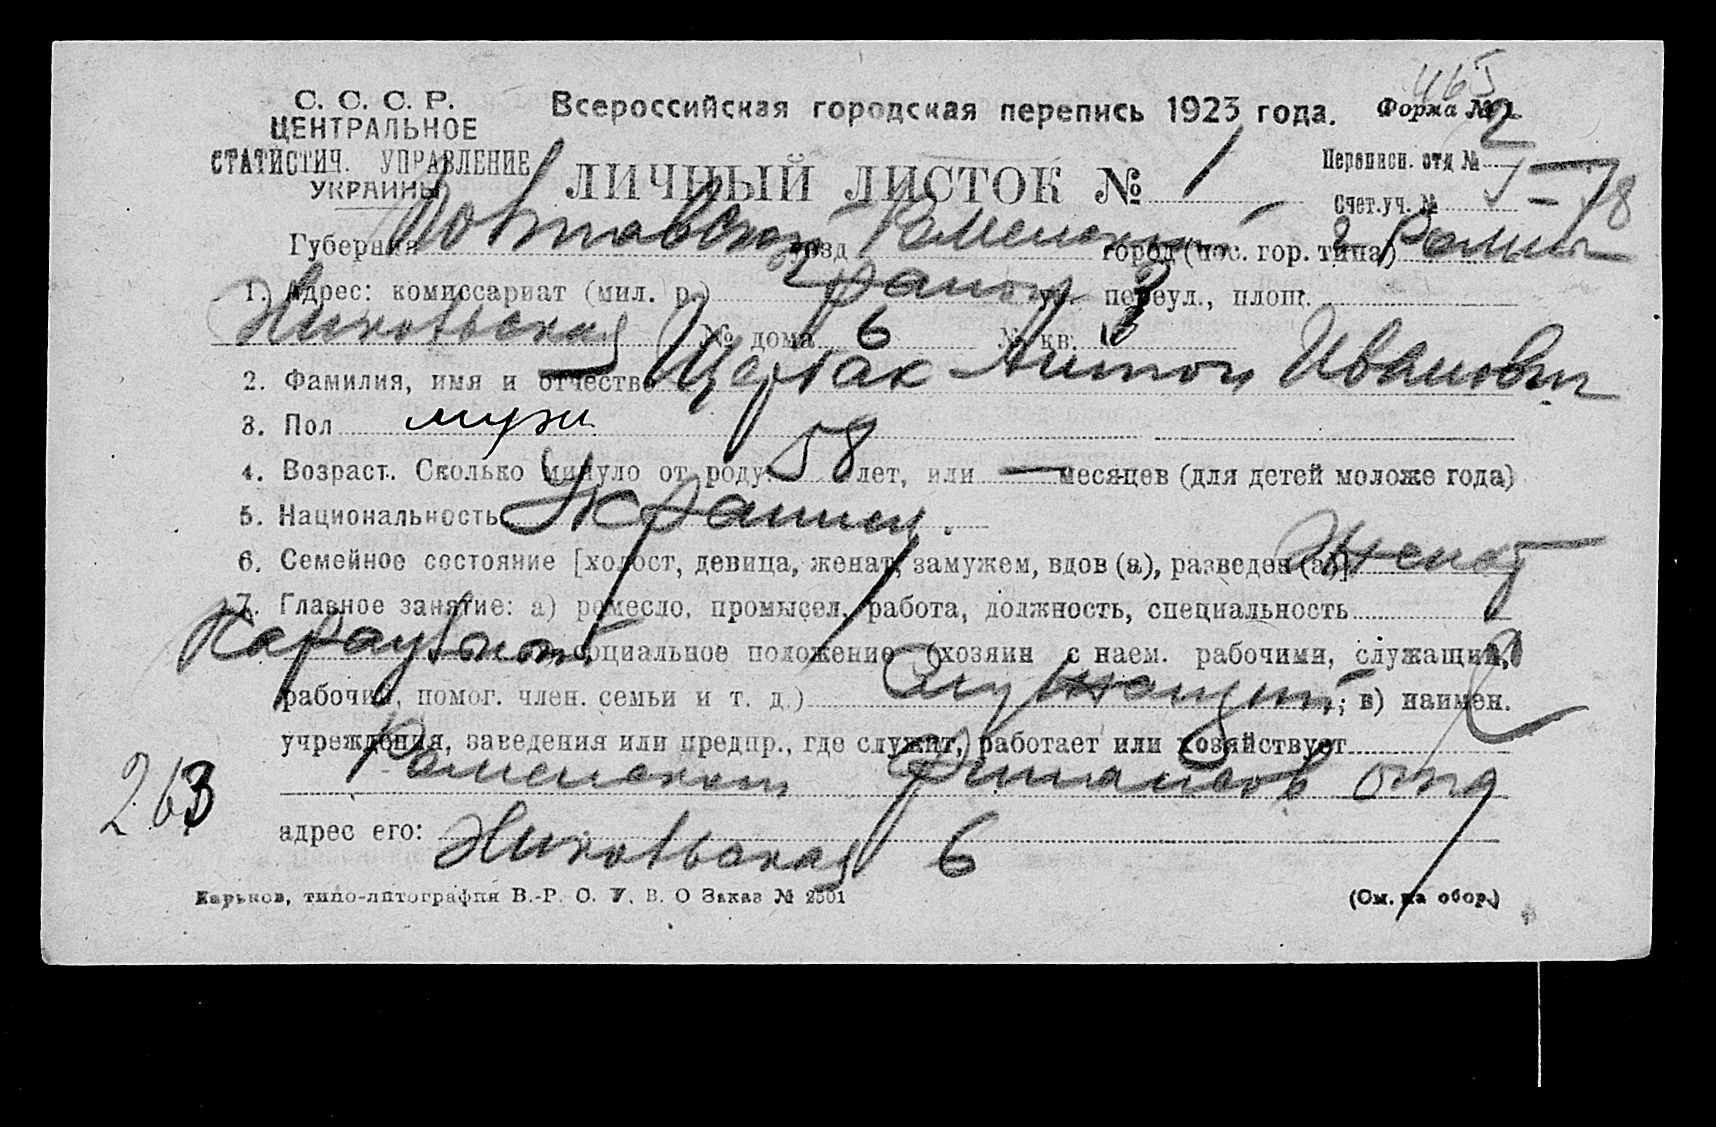 465
С. С. С. Р.
ЦЕНТРАЛЬНОЕ
СТАТИСТИЧ. УПРАВЛЕНИЕ
УКРАИНЫ
Всероссийская городская перепись 1923 года.
Форма № 2
ЛИЧНЫЙ ЛИСТОК № 1
Переписн. отд №
Счет.уч. №
Губерния Полтавской уезд Роменский город (пос. гор. типа) г Ромны
1. Адрес: комиссариат (мил. р.) 2 район ул. переул., площ.
№ дома 6 № кв.
2. Фамилия, имя и отчество Щербак Антон Иванович
3. Пол муж
4. Возраст. Сколько минуло от роду 58 лет, или — месяцев (для детей моложе года)
5. Национальность Украинец.
6. Семейное состояние [холост, девица, женат, замужем, вдов (а), разведен (а)] Женат
7. Главное занятие: а) ремесло, промысел, работа, должность, специальность
Караульный социальное положение (хозяин с наем. рабочими, служащий,
рабочий, помог. член. семьи и т. д.) Служащий; в) наимен.
учреждения, заведения или предпр., где служит, работает или хозяйствует
Роменском финансов отд
263
адрес его: 6
Харьков, типо-литография В.-Р. С. У. В. О Заказ № 2501
(См. на обор.)